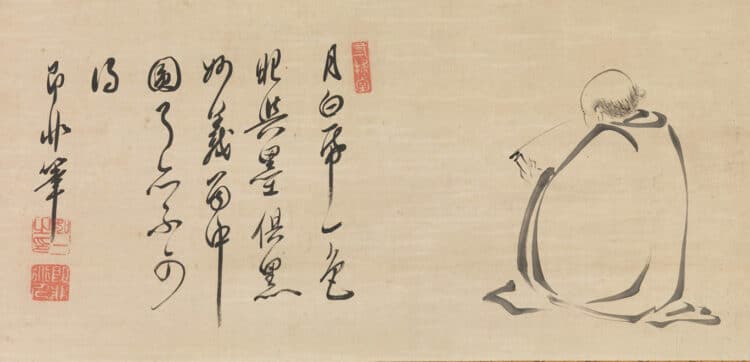 月白帋一色
眼與墨俱黒
妙義箇中
圓了亦不可
得
即非筆